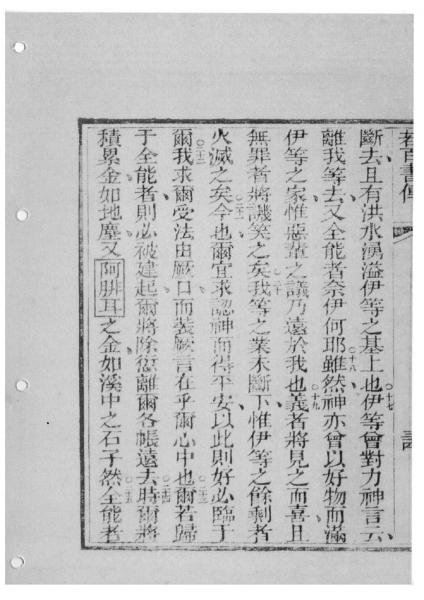 若百書傳
斷去且有洪水湧溢伊等之基上也○十七伊等會對力神言云
離我等去又全能者奈伊何耶○十八雖然神亦曾以好物而滿
伊等之家惟惡輩之議乃遠於我也○十九義者將見之而喜且
無罪者將譏笑之矣○二十我等之業未斷下惟伊等之餘剩者
火滅之矣○二一今也爾宜求認神而得平安以此則好必臨于
爾○二二我求爾受法由厥口而裝厥言在乎爾心中也○二三爾若歸
于全能者則必被建起爾將除愆離爾各帳遠去○二四時爾將
積累金如地塵又阿腓耳之金如溪中之石子○二五然全能者